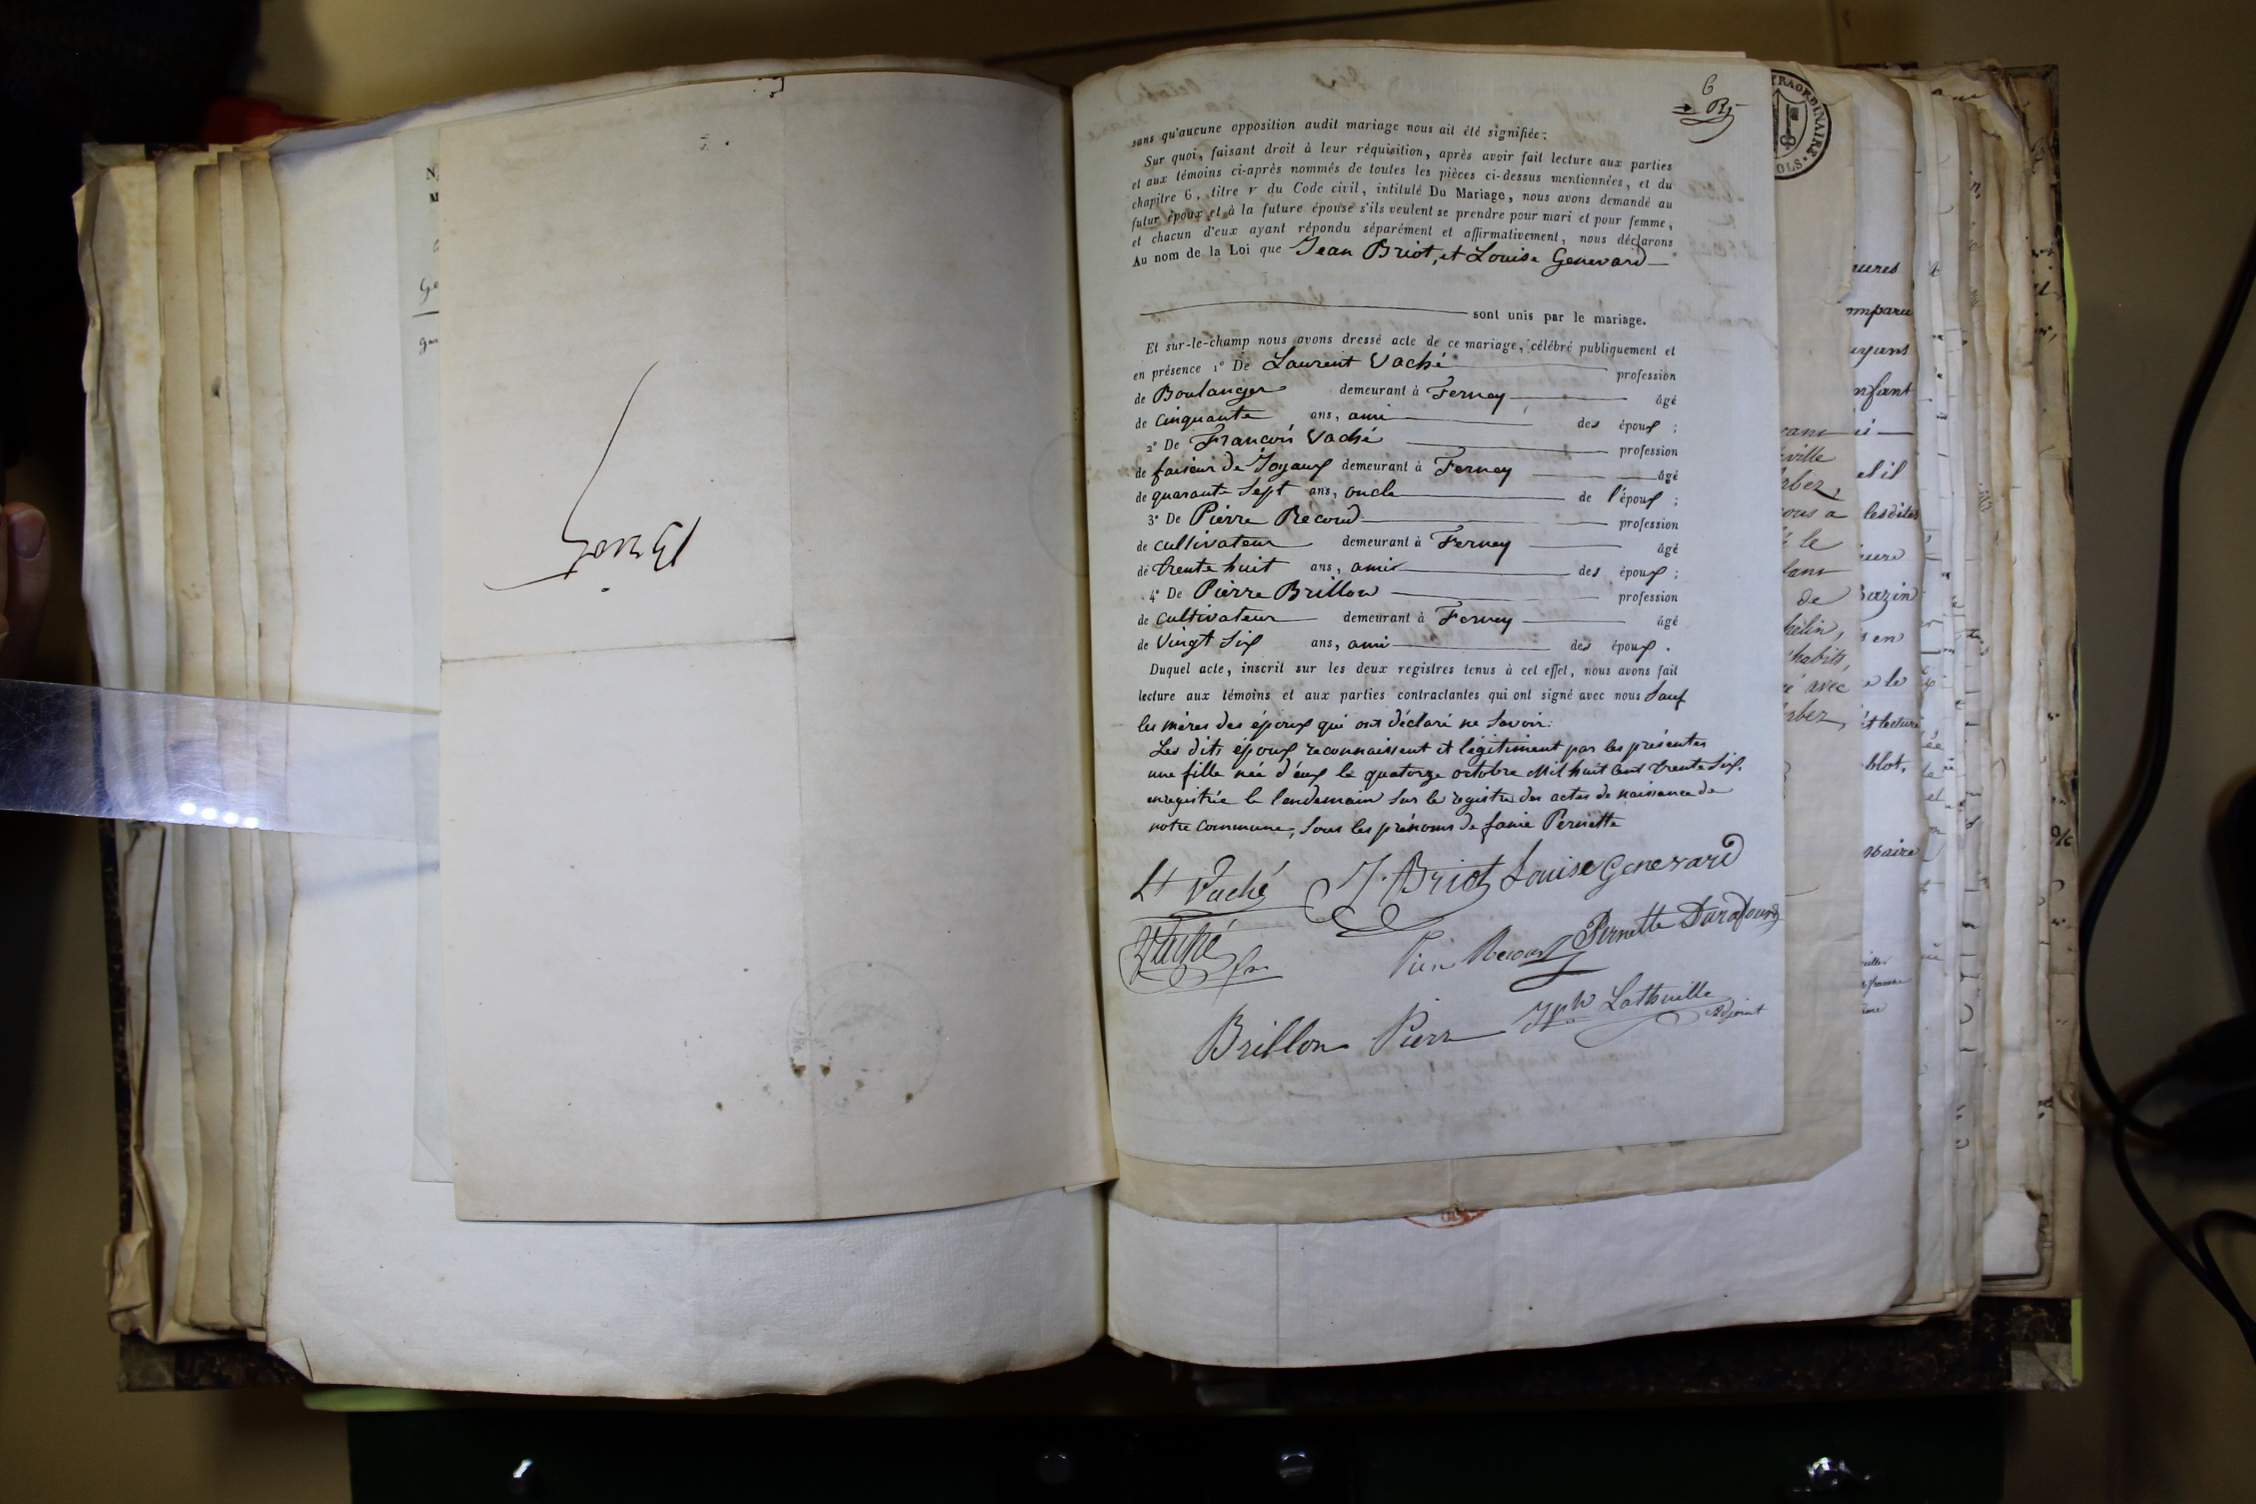 Briot
6
sans qu'aucune opposition audit mariage nous ait été signifiée;
Sur quoi, faisant droit à leur réquisition, après avoir fait lecture aux parties
et aux témoins ci-après nommés de toutes les pièces ci-dessus mentionnées, et du
chapitre 6, titre v du Code civil, intitulé Du Mariage, nous avons demandé au
futur époux et à la future épouse s'ils veulent se prendre pour mari et pour femme,
et chacun d'eux ayant répondu séparément et affirmativement, nous déclarons
Au nom de la Loi que Jean Briot, et Louise Genevard
sont unis par le mariage.
Et sur-le-champ nous avons dressé acte de ce mariage, célébré publiquement et
en présence 1° De Laurent Vaché profession
de Boulanger demeurant à Ferney âgé
de cinquante ans, ami des époux ;
2° De François Vaché profession
de faiseur de Joyaux demeurant à Ferney âgé
de quarante Sept ans, oncle de l'époux ;
3° De Pierre Record profession
de cultivateur demeurant à Ferney âgé
de trente huit ans, amis des époux ;
4° De Pierre Brillon profession
de cultivateur demeurant à Ferney âgé
de Vingt Six ans, ami des époux .
Duquel acte, inscrit sur les deux registres tenus à cet effet, nous avons fait
lecture aux témoins et aux parties contractantes qui ont signé avec nous Sauf
les mères des époux qui ont déclaré ne Savoir.
Les dits époux reconnaissent et légitiment par les présentes
une fille née d'eux le quatorze octobre Mil huit Cent trente Six,
enregistrée le lendemain Sur le registre des actes de naissance de
notre Commune, Sous les prénoms de fanie Pernette
Lt Vaché J. Briot Louise Genevard
Vaché Pernette Durafour
Brillon Pierr Jph Lathuille
Adjoint